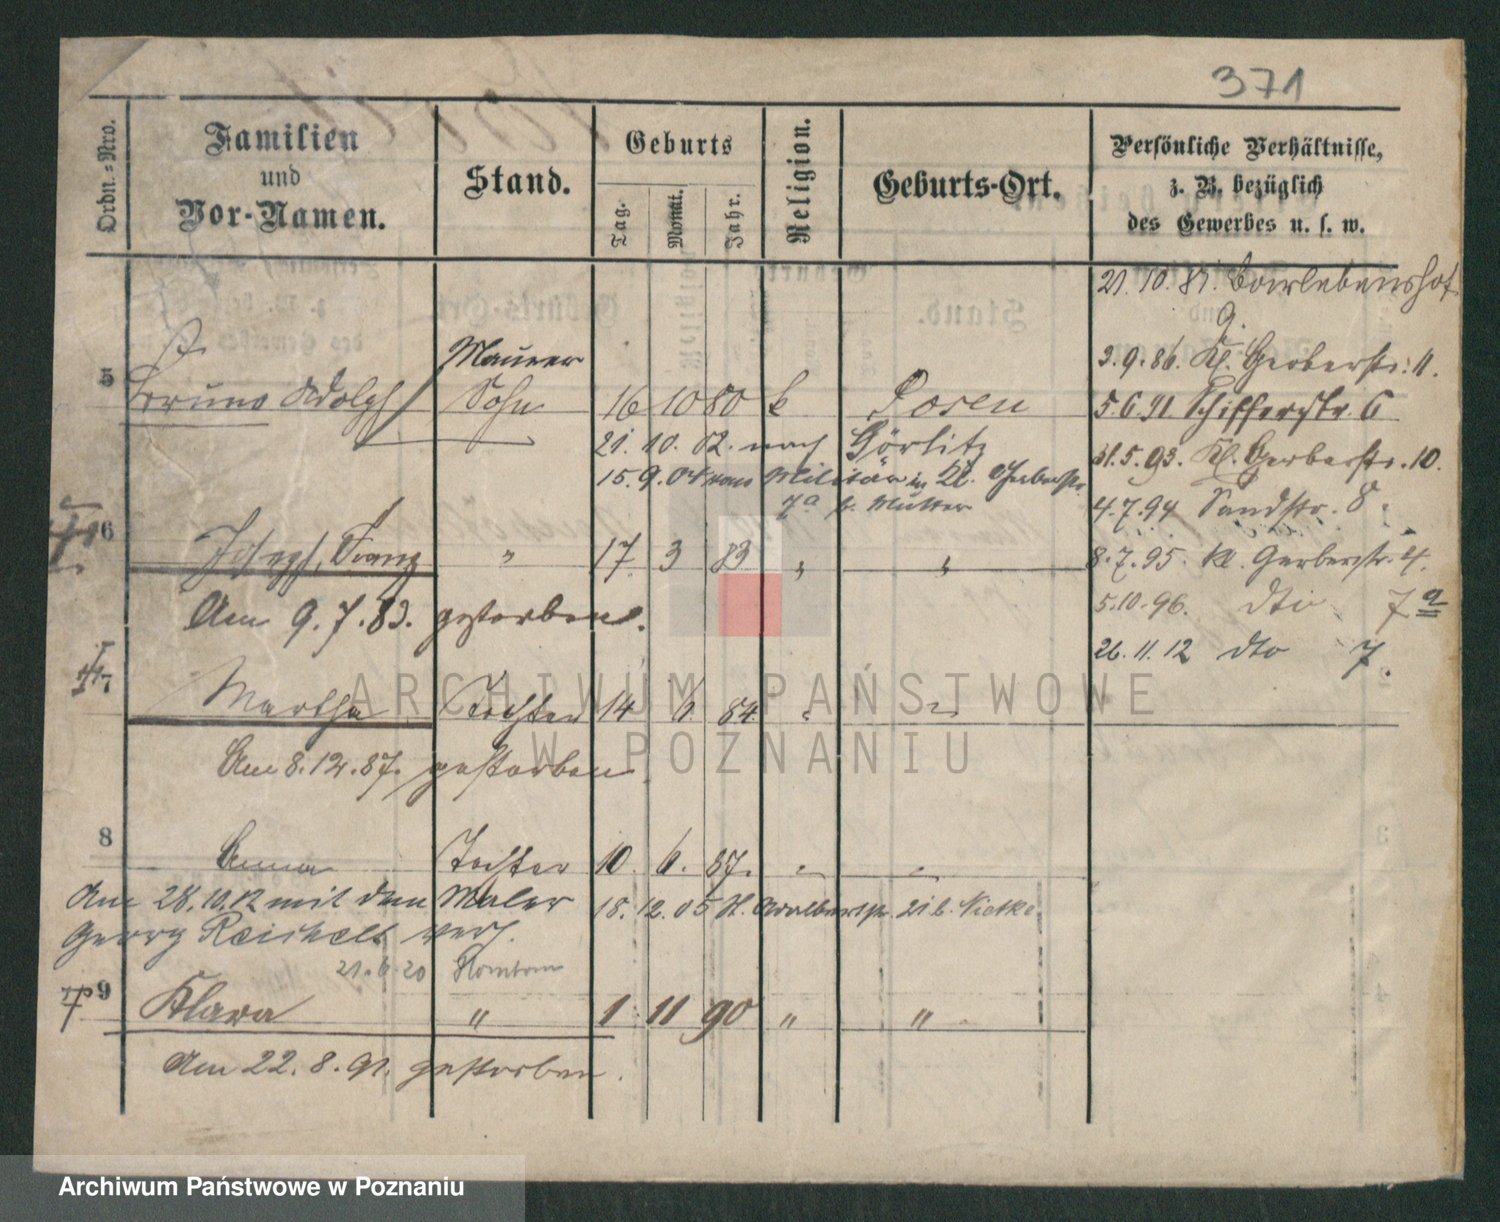 371
Ordn.-Nro.
Familien
und
Vor-Namen.
Stand.
Geburts
Tag.
Monat.
Jahr.
Religion.
Geburts-Ort.
Persönliche Verhältnisse,
z. B. bezüglich
des Gewerbes u. s. w.
5
Bruno Adolph
Maurer
Sohn
16 10 80 k Posen
21. 10. 02. nach Görlitz
15. 9. 04 vom Militär in Kl. Gerberstr.
7a z. Mutter
6
Joseph, Franz
" 17. 3 83 " "
Am 9. 7. 83. gestorben.
7
Martha Tochter 14 6. 84. " "
Am 8. 12. 87. gestorben
8
Anna Tochter 10. 6. 87. " "
Am 28. 10. 12 mit dem Maler
Georg Reichelt verh.
18. 12. 05 St. Adalbertstr. 21 b.
21. 6. 20
9
Klara " 1 11 90 " "
Am 22. 8. 91. gestorben.
21. 10. 81.
9.
3. 9. 86. Kl. Gerberstr. 11.
5 6 91 Schifferstr. 6
31. 5. 93. Kl. Gerberstr. 10.
4. 7. 94 Sandstr. 8.
8. 7. 95. Kl. Gerberstr. 4.
5. 10. 96. dto 7 a
26. 11. 12 dto 7.
ARCHIWUM PAŃSTWOWE
W POZNANIU
Archiwum Państwowe w Poznaniu